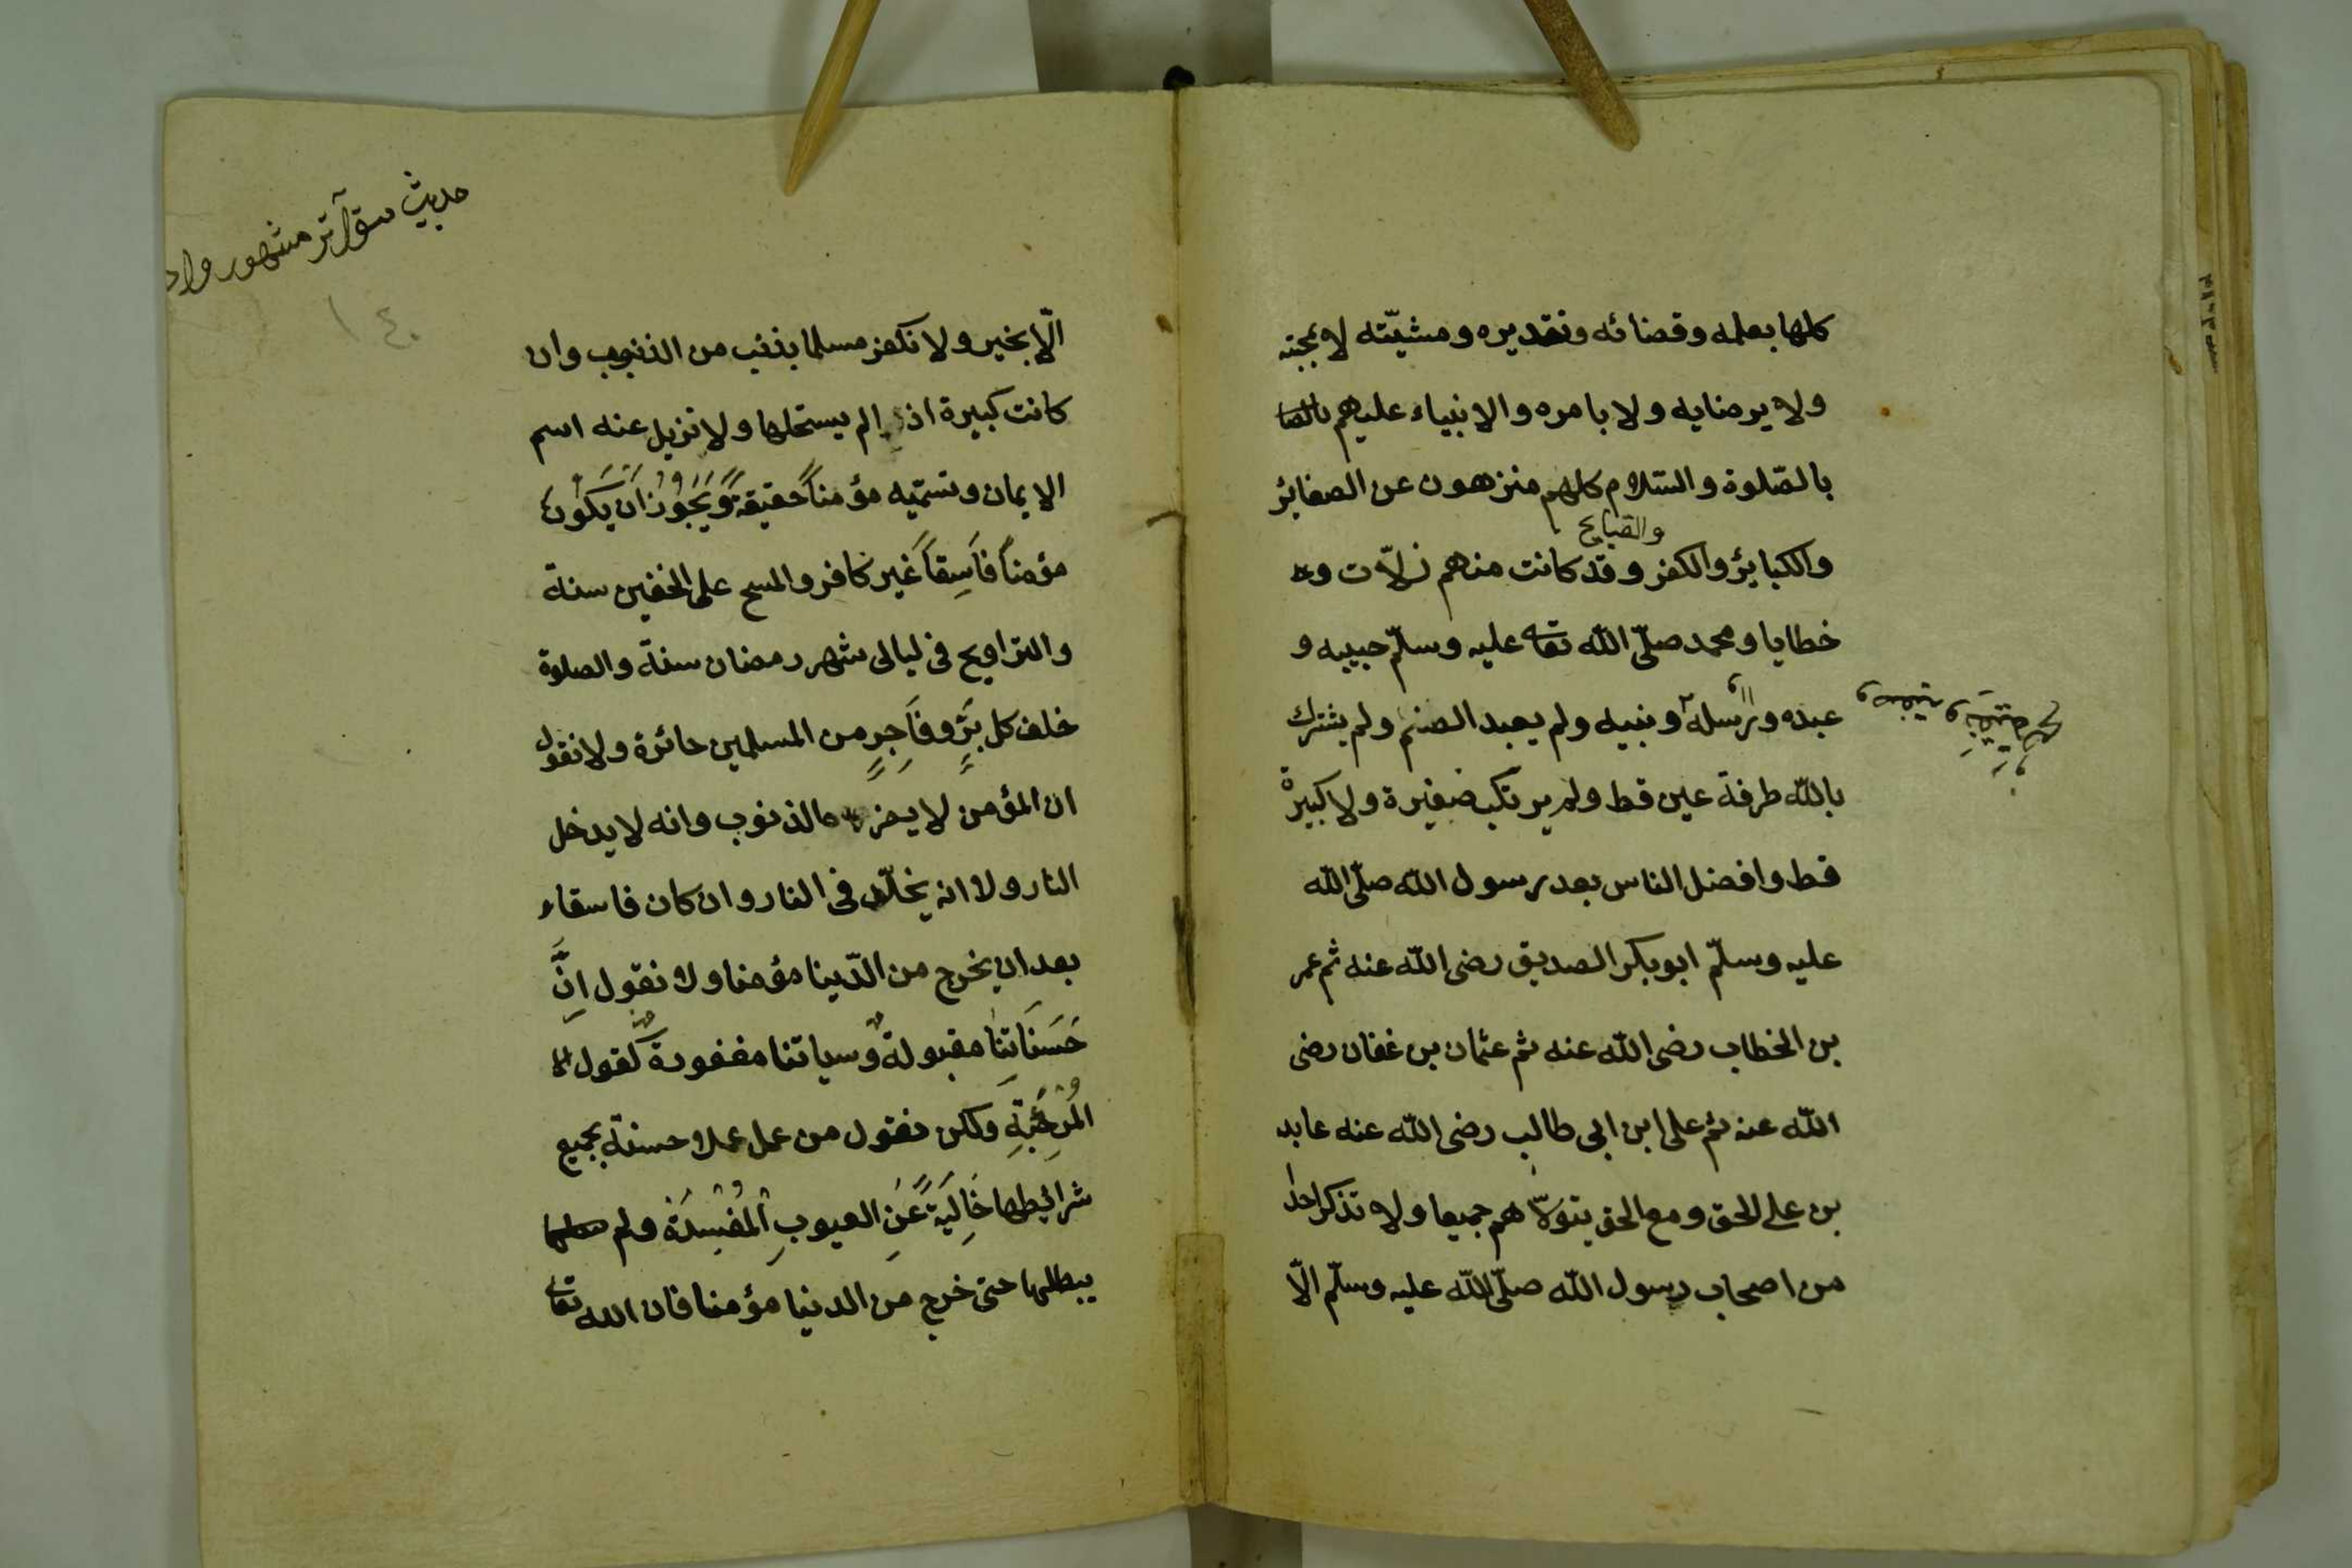 كلها بعلمه وقضائه وتقديره ومشيّته لا بمحبته
ولا برضايه ولا بامره والانبياء عليهم
بالصّلوة والسّلام كلهم منزهون عن الصغائر
والقبايح
والكبائر والكفر وقد كانت منهم زلاّت و
خطايا ومحمد صلّى اللّه تعا عليه وسلّم حبيبه و
عبده ورسله ونبيه ولم يعبد الصنم ولم يشترك
وصفيه و
باللّه طرفة عين قط ولم يرتكب صغيرة ولا كبيرة
قط وافضل الناس بعد رسول اللّه صلّى اللّه
عليه وسلّم ابو بكر الصديق رضى اللّه عنه ثم عمر
بن الخطاب رضى اللّه عنه ثم عثمان بن عفان رضى
اللّه عنه ثم على ابن ابى طالب رضى اللّه عنه عابد
ين على الحق ومع الحق يتولاّ هم جميعا ولا تذكر احدا
من اصحاب رسول اللّه صلّى اللّه عليه وسلّم الاّ
حديث متوآتر مشهور واد
١٤٠
الاّ بخير ولا نكفر مسلما بذنب من الذنوب وان
كانت كبيرة اذ الم يستحلها ولا نزيل عنه اسم
الايمان ونسمّيه مؤمناً حقيقةً وَيَجُوزُ اَنْ يَكُونَ
مؤمناً فاَسِقاً غير كافر والمسح على الخفين سنة
والتراويح فى ليالى شهر رمضان سنة والصلوة
خلف كل بَرٍّ وفاَجِرٍ من المسلمين جائزة ولا نقول
ان المؤمن لا يضره الذنوب وانه لا يدخل
النار ولا انه يخلّد فى النار وان كان فاسقاء
بعد ان يخرج من الدّينا مؤمنا ولا نقول اِنَّ
حَسَنَاتِنَا مقبولةٌ وسياتنا مغفورةٌ كقول
المُرْجِئَةِ ولكن نقول من عمل عملا حسنة بجميع
شرائطها خَالِيَةً عَنِ العيوبِ اْلمُفْسِدَة ولم
يبطلها حتى خرج من الدنيا مؤمنا فان اللّه تعا